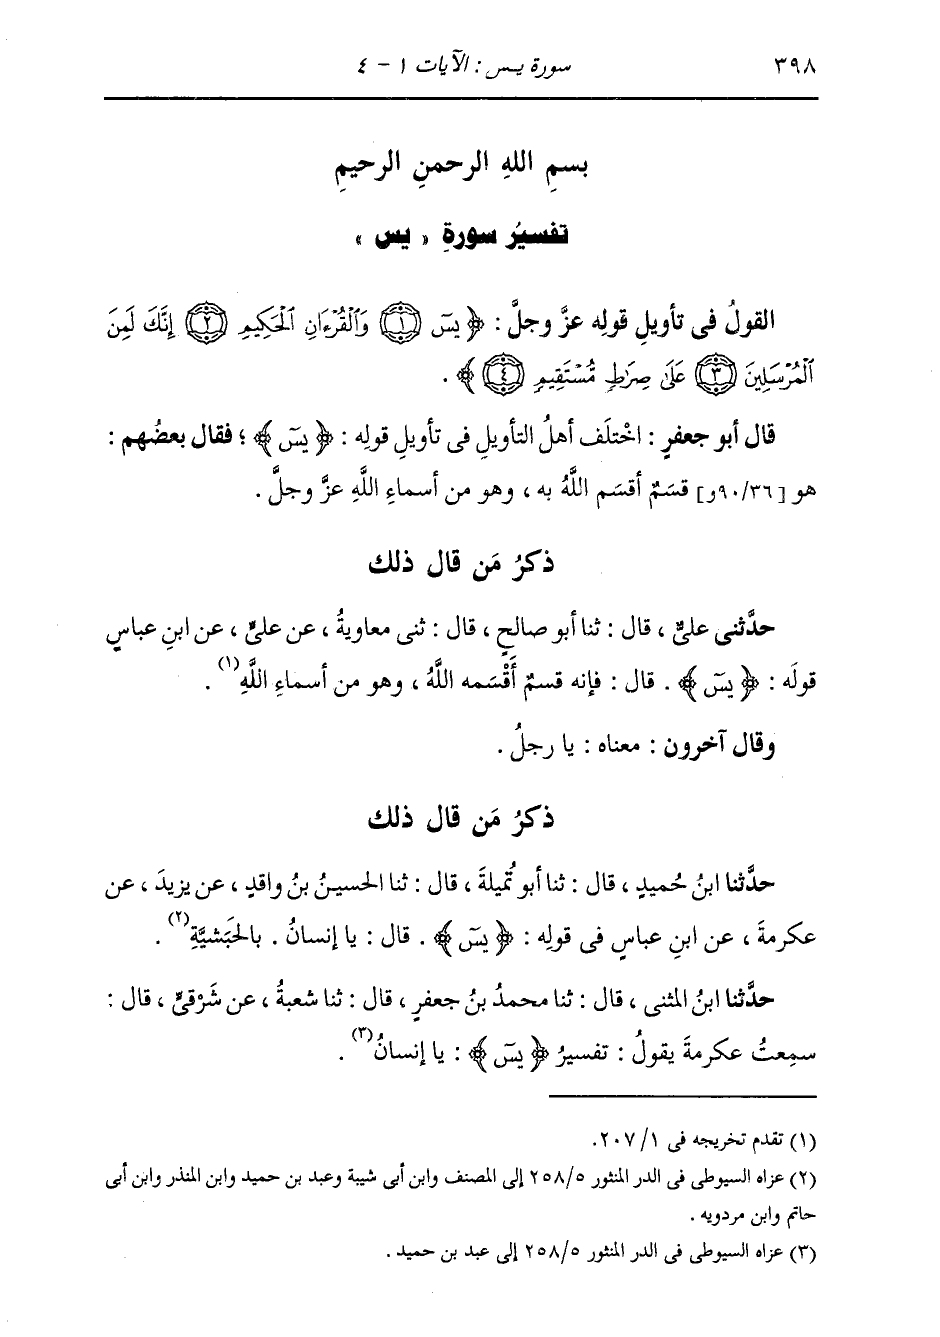 ٣٩٨ سورة يــس : الآيات ١ - ٤
بسمِ اللهِ الرحمنِ الرحيمِ
تفسيرُ سورةِ « يس »
القولُ فى تأويلِ قولِه عزَّ وجلَّ : ﴿ يسٓ ۝١ وَٱلْقُرْءَانِ ٱلْحَكِيمِ ۝٢ إِنَّكَ لَمِنَ
ٱلْمُرْسَلِينَ ۝٣ عَلَىٰ صِرَٰطٍ مُّسْتَقِيمٍ ۝٤ ﴾ .
قال أبو جعفرٍ : اخْتلَف أهلُ التأويلِ فى تأويلِ قولِه : ﴿ يسٓ ﴾ ؛ فقال بعضُهم :
هو [٩٠/٣٦و] قسَمٌ أقسَم اللَّهُ به ، وهو من أسماءِ اللَّهِ عزَّ وجلَّ .
ذكرُ مَن قال ذلك
حدَّثنى علىٌّ ، قال : ثنا أبو صالحٍ ، قال : ثنى معاويةُ ، عن علىٍّ ، عن ابنِ عباسٍ
قولَه : ﴿ يسٓ ﴾ . قال : فإنه قسمٌ أَقْسَمه اللَّهُ ، وهو من أسماءِ اللَّهِ(١) .
وقال آخرون : معناه : يا رجلُ .
ذكرُ مَن قال ذلك
حدَّثنا ابنُ حُميدٍ ، قال : ثنا أبو تُميلةَ ، قال : ثنا الحسينُ بنُ واقدٍ ، عن يزيدَ ، عن
عكرمةَ ، عن ابنِ عباسٍ فى قولِه : ﴿ يسٓ ﴾ . قال : يا إنسانُ . بالحَبَشيَّةِ(٢) .
حدَّثنا ابنُ المثنى ، قال : ثنا محمدُ بنُ جعفرٍ ، قال : ثنا شعبةُ ، عن شَرْقىٍّ ، قال :
سمِعتُ عكرمةَ يقولُ : تفسيرُ ﴿ يسٓ ﴾ : يا إنسانُ(٣) .
(١) تقدم تخريجه فى ١/ ٢٠٧.
(٢) عزاه السيوطى فى الدر المنثور ٢٥٨/٥ إلى المصنف وابن أبى شيبة وعبد بن حميد وابن المنذر وابن أبى
حاتم وابن مردويه .
(٣) عزاه السيوطى فى الدر المنثور ٢٥٨/٥ إلى عبد بن حميد .